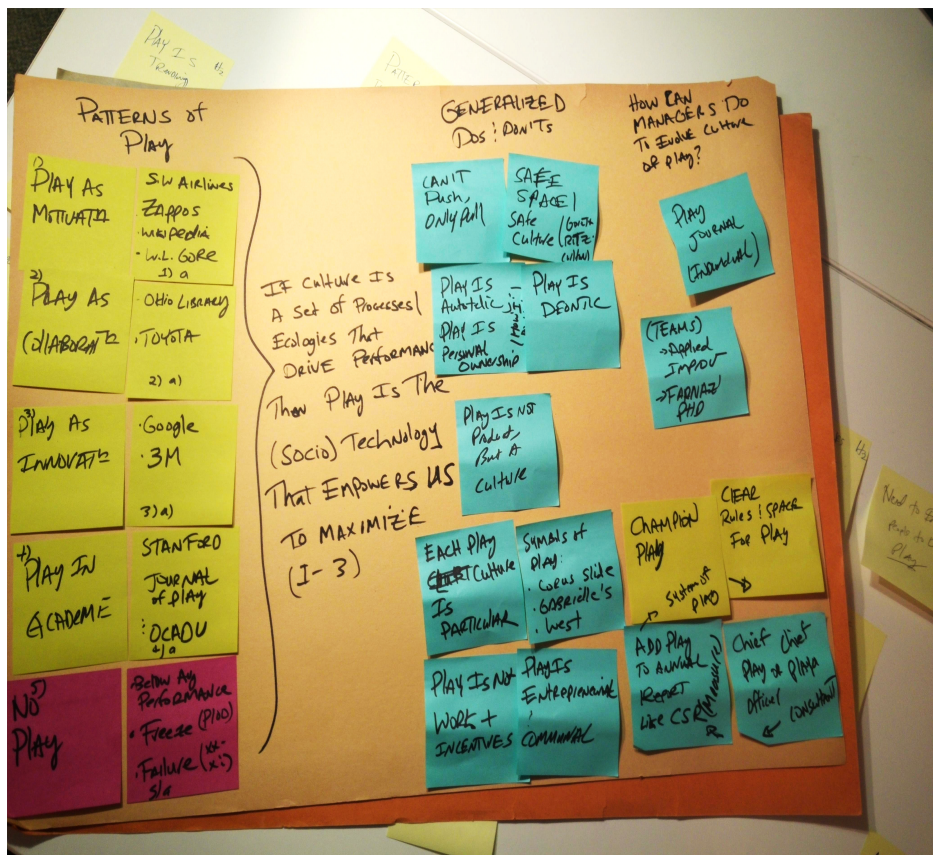 PLAY IS
PATTERNS of
PLAY
1)
PLAY AS
MOTIVATR
S.W AIRLINES
· ZAPPOS
· WIKIPEDIA
· W.L. GORE
1) a
2)
PLAY AS
COLLABORATR
· OHIO LIBRARY
· TOYOTA
2) a)
3)
PLAY AS
INNOVATR
· Google
· 3M
3) a)
4)
PLAY IN
ACADEME
STANFORD
JOURNAL
of PLAY
: OCADU
4/a
5)
NO
PLAY
Below Avg
PERFORMANCE
· Freeze
· Failure
5/a
IF Culture Is
A Set of Processes/
Ecologies That
DRIVE PERFORMANCE
Then PLAY IS The
(SOCIO) TECHNOLOGY
THAT EMPOWERS US
TO MAXIMIZE
(1-3)
GENERALIZED
DOS : DON'TS
CAN'T
Push,
ONLY Pull
SAFE
SPACE /
SAFE
Culture
PLAY IS
Autotelic
PLAY IS
PERSONAL
OWNERSHIP
PLAY IS
DEONTIC
PLAY IS NOT
Product,
But A
Culture
EACH PLAY
Culture
IS
PARTICULAR
Symbols of
PLAY:
· CORUS Slide
· GABRIELLE'S
· West
PLAY IS NOT
WORK +
INCENTIVES
PLAY IS
ENTREPRENEURIAL
:
COMMUNAL
HOW CAN
MANAGERS DO
TO EVOLVE CULTURE
OF PLAY?
PLAY
JOURNAL
(INDIVIDUAL)
(TEAMS)
→ Applied
IMPROV
→ FARNAZ'
PHD
CHAMPION
PLAY
System of
PLAY
CLEAR
Rules : SPACE
FOR PLAY
ADD PLAY
TO ANNUAL
REPORT
LIKE CSR
Chief Chief
PLAY OR PLAYA
Officer
CONSULTANT
Need to
PLAY